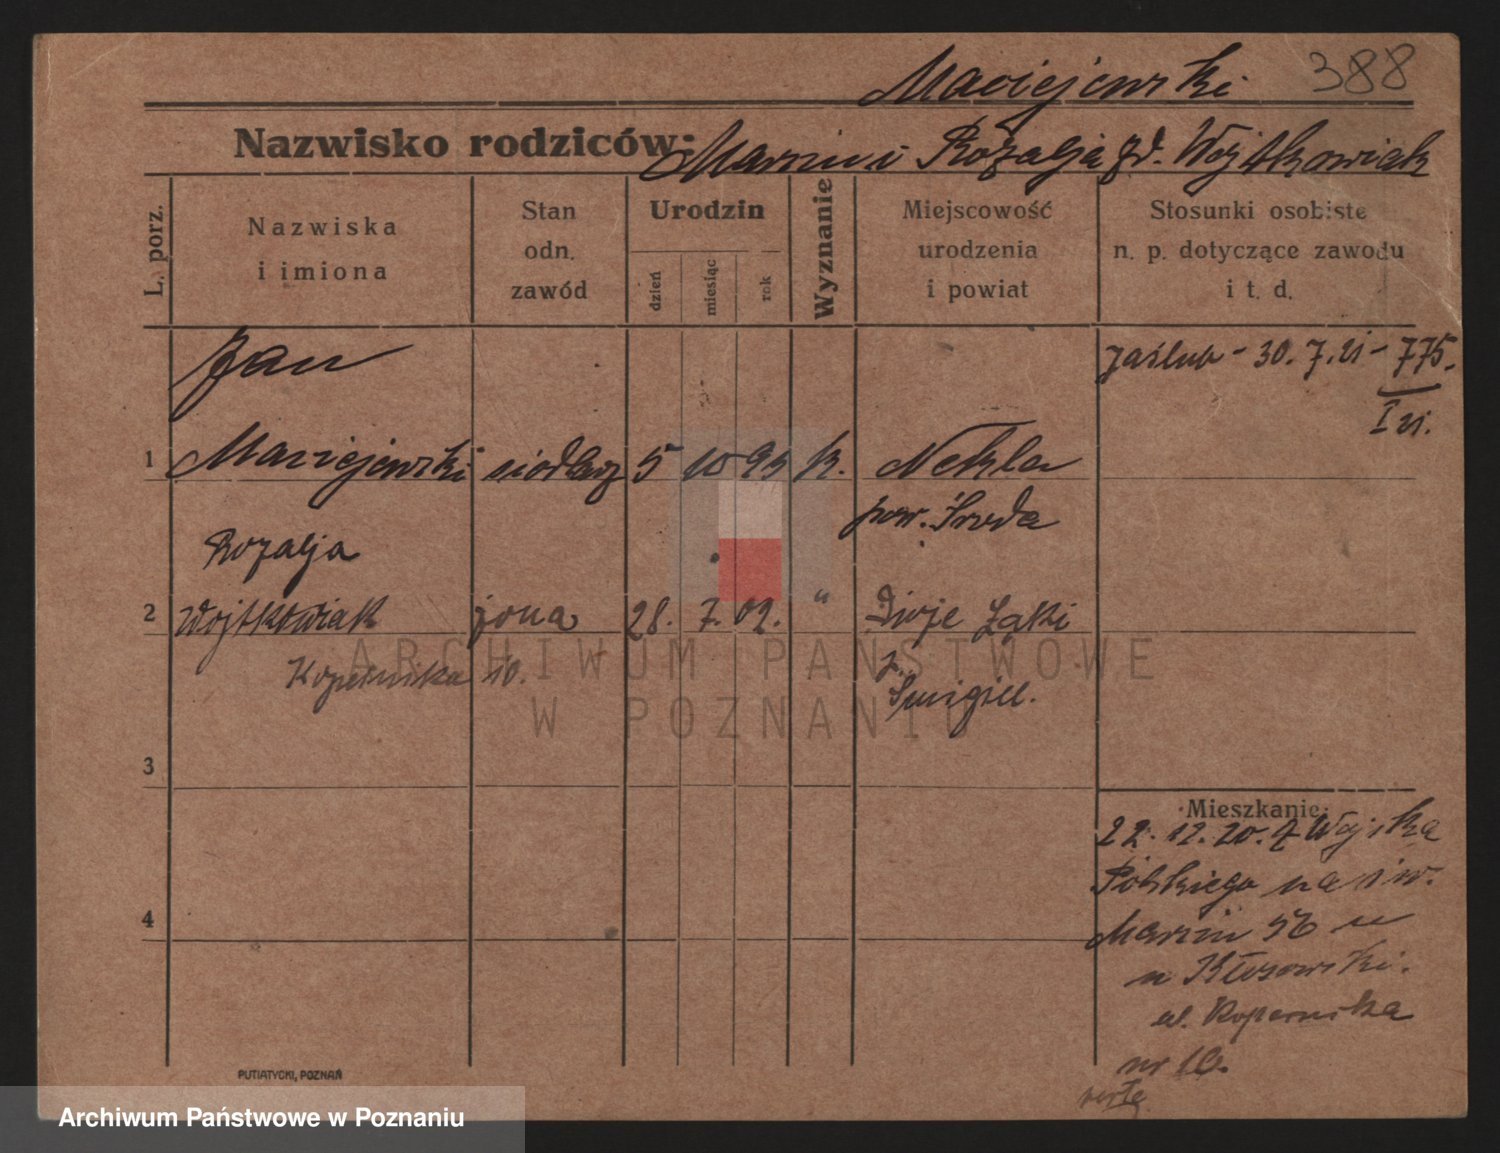 Maciejewski 388
Nazwisko rodziców: Marcin i Rozalja zd. Wojtkowiak
L. porz.
Nazwiska
i imiona
Stan
odn.
zawód
Urodzin
dzień
miesiąc
rok
Wyznanie
Miejscowość
urodzenia
i powiat
Stosunki osobiste
n. p. dotyczące zawodu
i t. d.
Jan zaślub - 30.7.21 - 775.
I 21.
1 Maciejewski siodlarz 5 10 93 k. Nekla
pow. Środa
Rozalja
2 Wojtkowiak żona 28. 7. 02. " Dwie Łąki
Kopernika 10. z.
Śmigiel.
3
Mieszkanie:
22.12.20. z Wojska
Polskiego na św.
4 Marcin 56 u
Kłosowski.
ul. Kopernika
nr 10.
verte
PUTIATYCKI, POZNAŃ
ARCHIWUM PAŃSTWOWE
W POZNANIU
Archiwum Państwowe w Poznaniu